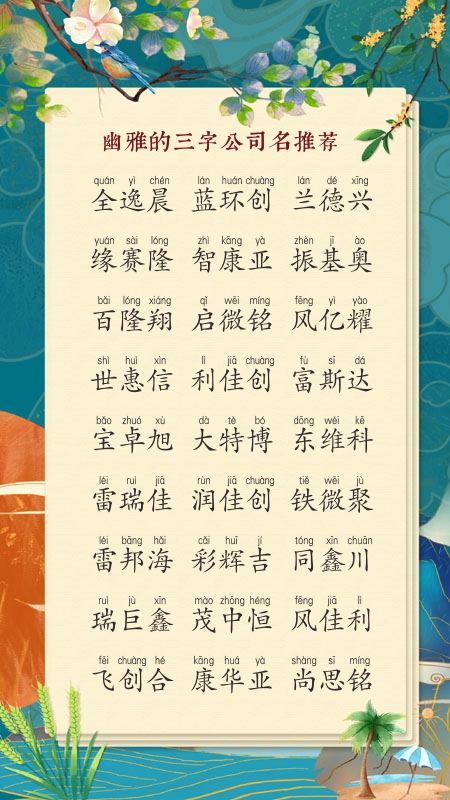 幽雅的三字公司名推荐
quán yì chén lán huán chuàng lán dé xīng
全逸晨 蓝环创 兰德兴
yuán sài lóng zhì kāng yà zhèn jī ào
缘赛隆 智康亚 振基奥
bǎi lóng xiáng qǐ wēi míng fēng yì yào
百隆翔 启微铭 风亿耀
shì huì xìn lì jiā chuàng fù sī dá
世惠信 利佳创 富斯达
bǎo zhuó xù dà tè bó dōng wéi kē
宝卓旭 大特博 东维科
léi ruì jiā rùn jiā chuàng tiě wēi jù
雷瑞佳 润佳创 铁微聚
léi bāng hǎi cǎi huī jí tóng xīn chuān
雷邦海 彩辉吉 同鑫川
ruì jù xīn mào zhōng héng fēng jiā lì
瑞巨鑫 茂中恒 风佳利
fēi chuàng hé kāng huá yà shàng sī míng
飞创合 康华亚 尚思铭